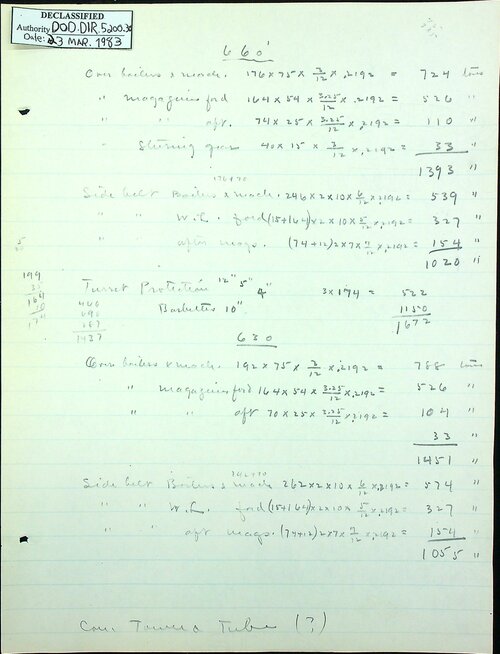 DECLASSIFIED
Authority DOD.DIR.5200.30
Date: 23 MAR. 1983
660'
Over boilers & mach. 176x75x 3/12 x .2192 = 724 tons
" magazines ford 164x54x 3.25/12 x .2192 = 526 "
" " aft. 74x25x 3.25/12 x .2192 = 110 "
" Steering gear 40x15x 3/12 x .2192 = 33 "
1393 "
176+70
Side belt Boilers & mach. 246x2x10x 6/12 x .2192 = 539 "
" " W.L. ford (15+164)x2x10x 5/12 x .2192 = 327 "
" " after mags. (74+12)x2x7x 7/12 x .2192 = 154 "
1020 "
199
35
164
10
174
Turret Protection 12" 5" 4" 3x174 = 522
Barbettes 10" 1150
1672
1437
630
Over boilers & mach. 192x75x 3/12 x .2192 = 788 tons
" magazines ford 164x54x 3.25/12 x .2192 = 526 "
" " aft 70x25x 3.25/12 x .2192 = 104 "
33 "
1451 "
192+70
Side belt Boilers & mach 262x2x10x 6/12 x .2192 = 574 "
" " W.L. ford (15+164)x2x10x 5/12 x .2192 = 327 "
" " aft mags. (74+12)x2x7x 7/12 x .2192 = 154 "
1055 "
Con. Tower & Tube (?)